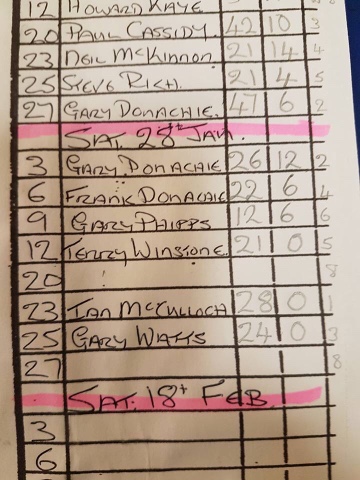 12 HOWARD KAYE
20 PAUL CASSIDY. 42 10 3
23 NEIL MCKINNON 21 14 4
25 STEVE RICH. 21 4 5
27 GARY DONACHIE. 47 6 2
SAT. 28th JAN.
3 GARY DONACHIE 26 12 2
6 FRANK DONACHIE 22 6 4
9 GARY PHIPPS 12 6 6
12 TERRY WINSTONE 21 0 5
20 8
23 IAN MCCULLOCH 28 0 1
25 GARY WATTS 24 0 3
27 8
SAT. 18th FEB
3
6